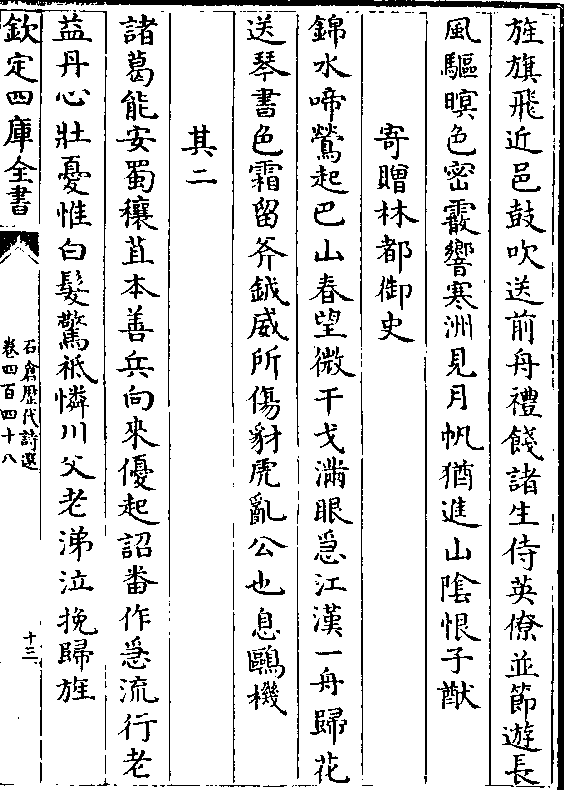 旌旗飛近邑鼓吹送前舟禮餞諸生侍英僚並節遊長
風驅暝色密霰響寒洲見月帆猶進山陰恨子猷
寄贈林都御史
錦水啼鶯起巴山春望微干戈滿眼急江漢一舟歸花
送琴書色霜留斧鉞威所傷豺虎亂公也息鷗機
其二
諸葛能安蜀穰苴本善兵向來優起詔畨作急流行老
益丹心壯憂惟白髮驚袛憐川父老涕泣挽歸旌
欽定四庫全書
石倉歷代詩選
卷四百四十八
十三